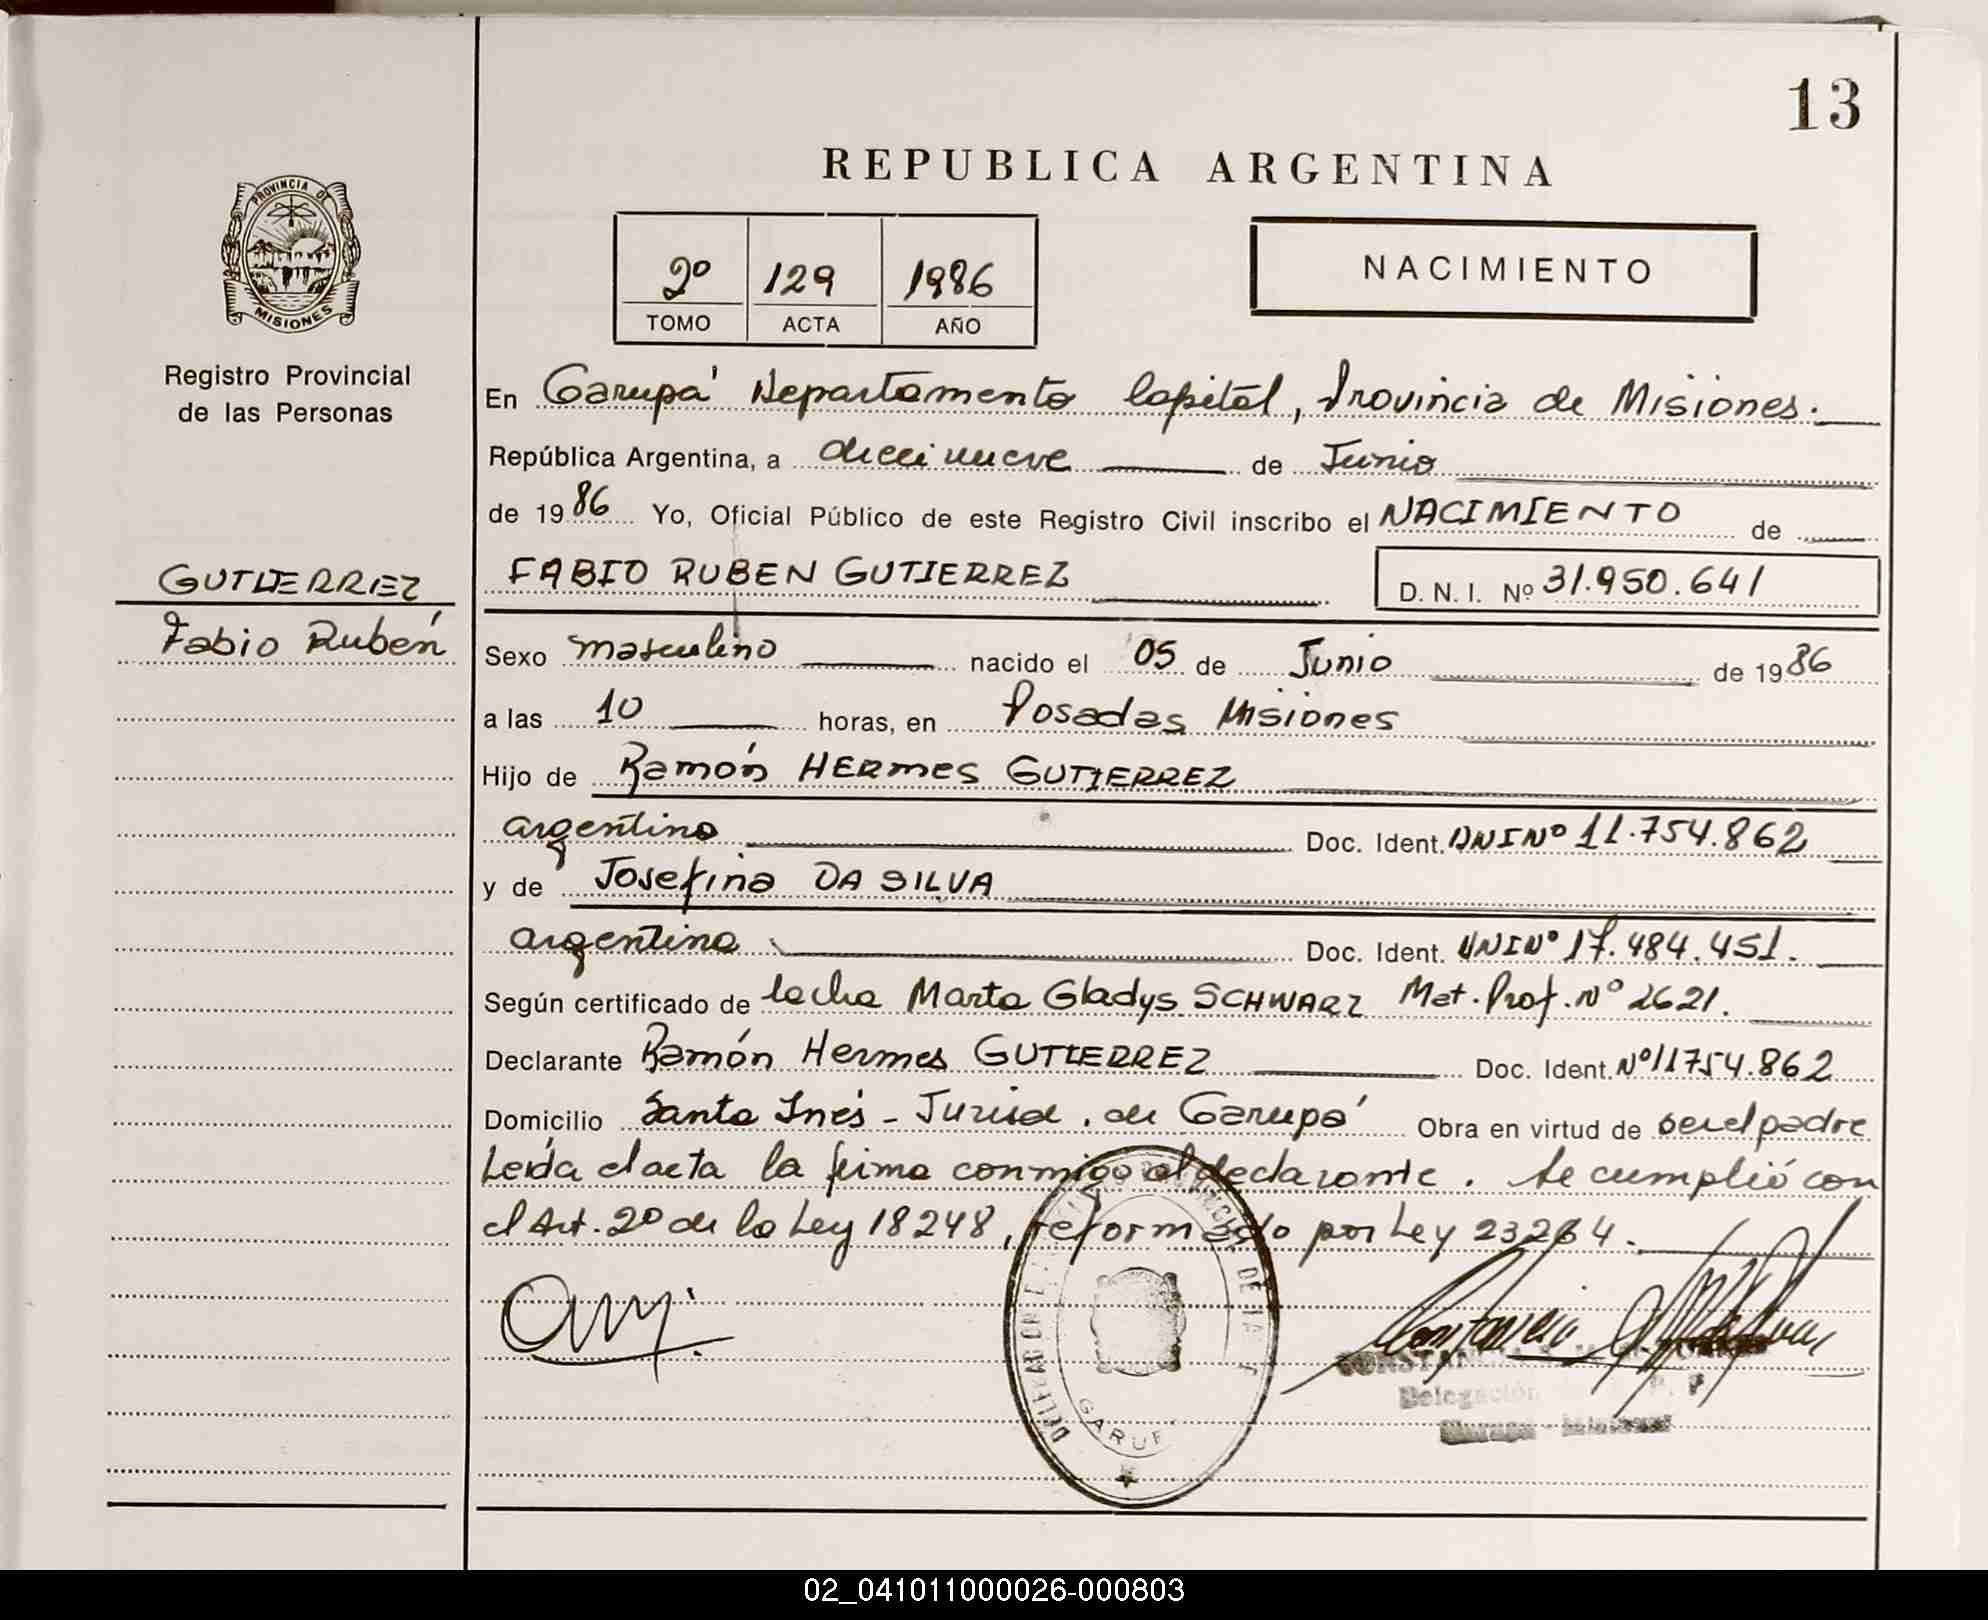 13
REPUBLICA ARGENTINA
PROVINCIA DE
MISIONES
Registro Provincial
de las Personas
2º 129 1986
TOMO ACTA AÑO
NACIMIENTO
En Garupá Departamento Capital, Provincia de Misiones.
República Argentina, a diecinueve de Junio
de 1986 Yo, Oficial Público de este Registro Civil inscribo el NACIMIENTO de
GUTIERREZ
Fabio Rubén
FABIO RUBEN GUTIERREZ D. N. I. Nº 31.950.641
Sexo masculino nacido el 05 de Junio de 1986
a las 10 horas, en Posadas Misiones
Hijo de Ramón HERmes GUTIERREZ
argentino Doc. Ident. DNI Nº 11.754.862
y de Josefina DA SILVA
argentina Doc. Ident. DNI Nº 17.484.451.
Según certificado de Marta Gladys SCHWARZ Mat. Prof. Nº 2621.
Declarante Ramón Hermes GUTIERREZ Doc. Ident. Nº 11754.862
Domicilio Santa Inés - Jurisd. de Garupá Obra en virtud de ser el padre
Leída el acta la firma conmigo el declarante. Se cumplió con
el Art. 2º de la Ley 18248, reformado por Ley 23264.
DE LA
GARUP
CONSTANCIA
Delegación
02_041011000026-000803